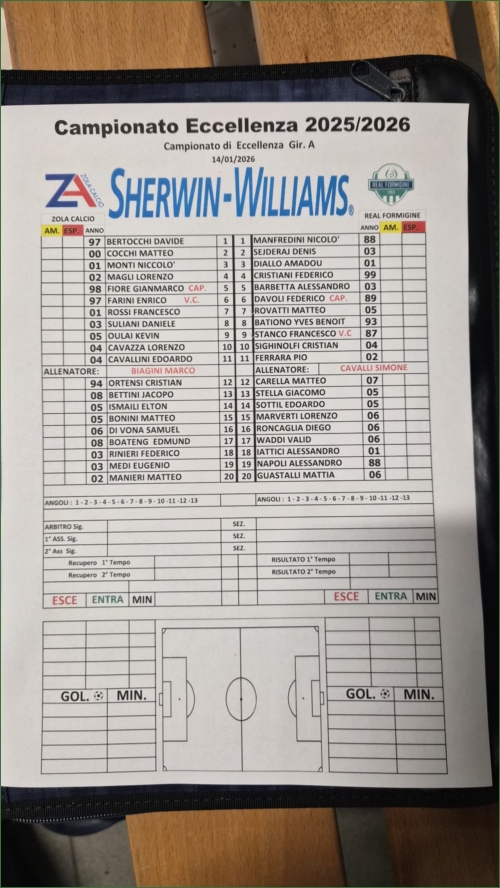 Campionato Eccellenza 2025/2026
Campionato di Eccellenza Gir. A
14/01/2026
ZA ZOLA CALCIO SHERWIN-WILLIAMS® REAL FORMIGINE
ZOLA CALCIO REAL FORMIGINE
AM. ESP. ANNO ANNO AM. ESP.
97 BERTOCCHI DAVIDE 1 1 MANFREDINI NICOLO' 88
00 COCCHI MATTEO 2 2 SEJDERAJ DENIS 03
01 MONTI NICCOLO' 3 3 DIALLO AMADOU 01
02 MAGLI LORENZO 4 4 CRISTIANI FEDERICO 99
98 FIORE GIANMARCO CAP. 5 5 BARBETTA ALESSANDRO 03
97 FARINI ENRICO V.C. 6 6 DAVOLI FEDERICO CAP. 89
01 ROSSI FRANCESCO 7 7 ROVATTI MATTEO 05
03 SULIANI DANIELE 8 8 BATIONO YVES BENOIT 93
05 OULAI KEVIN 9 9 STANCO FRANCESCO V.C 87
04 CAVAZZA LORENZO 10 10 SIGHINOLFI CRISTIAN 04
04 CAVALLINI EDOARDO 11 11 FERRARA PIO 02
ALLENATORE: BIAGINI MARCO ALLENATORE: CAVALLI SIMONE
94 ORTENSI CRISTIAN 12 12 CARELLA MATTEO 07
08 BETTINI JACOPO 13 13 STELLA GIACOMO 05
05 ISMAILI ELTON 14 14 SOTTIL EDOARDO 05
05 BONINI MATTEO 15 15 MARVERTI LORENZO 06
06 DI VONA SAMUEL 16 16 RONCAGLIA DIEGO 06
08 BOATENG EDMUND 17 17 WADDI VALID 06
03 RINIERI FEDERICO 18 18 IATTICI ALESSANDRO 01
03 MEDI EUGENIO 19 19 NAPOLI ALESSANDRO 88
02 MANIERI MATTEO 20 20 GUASTALLI MATTIA 06
ANGOLI : 1 - 2 - 3 - 4 - 5 - 6 - 7 - 8 - 9 - 10 -11 -12 -13 ANGOLI : 1 - 2 - 3 - 4 - 5 - 6 - 7 - 8 - 9 - 10 -11 -12 -13
ARBITRO Sig. SEZ.
1° ASS. Sig. SEZ.
2° Ass Sig. SEZ.
Recupero 1° Tempo RISULTATO 1° Tempo
Recupero 2° Tempo RISULTATO 2° Tempo
ESCE ENTRA MIN ESCE ENTRA MIN
GOL. MIN. GOL. MIN.